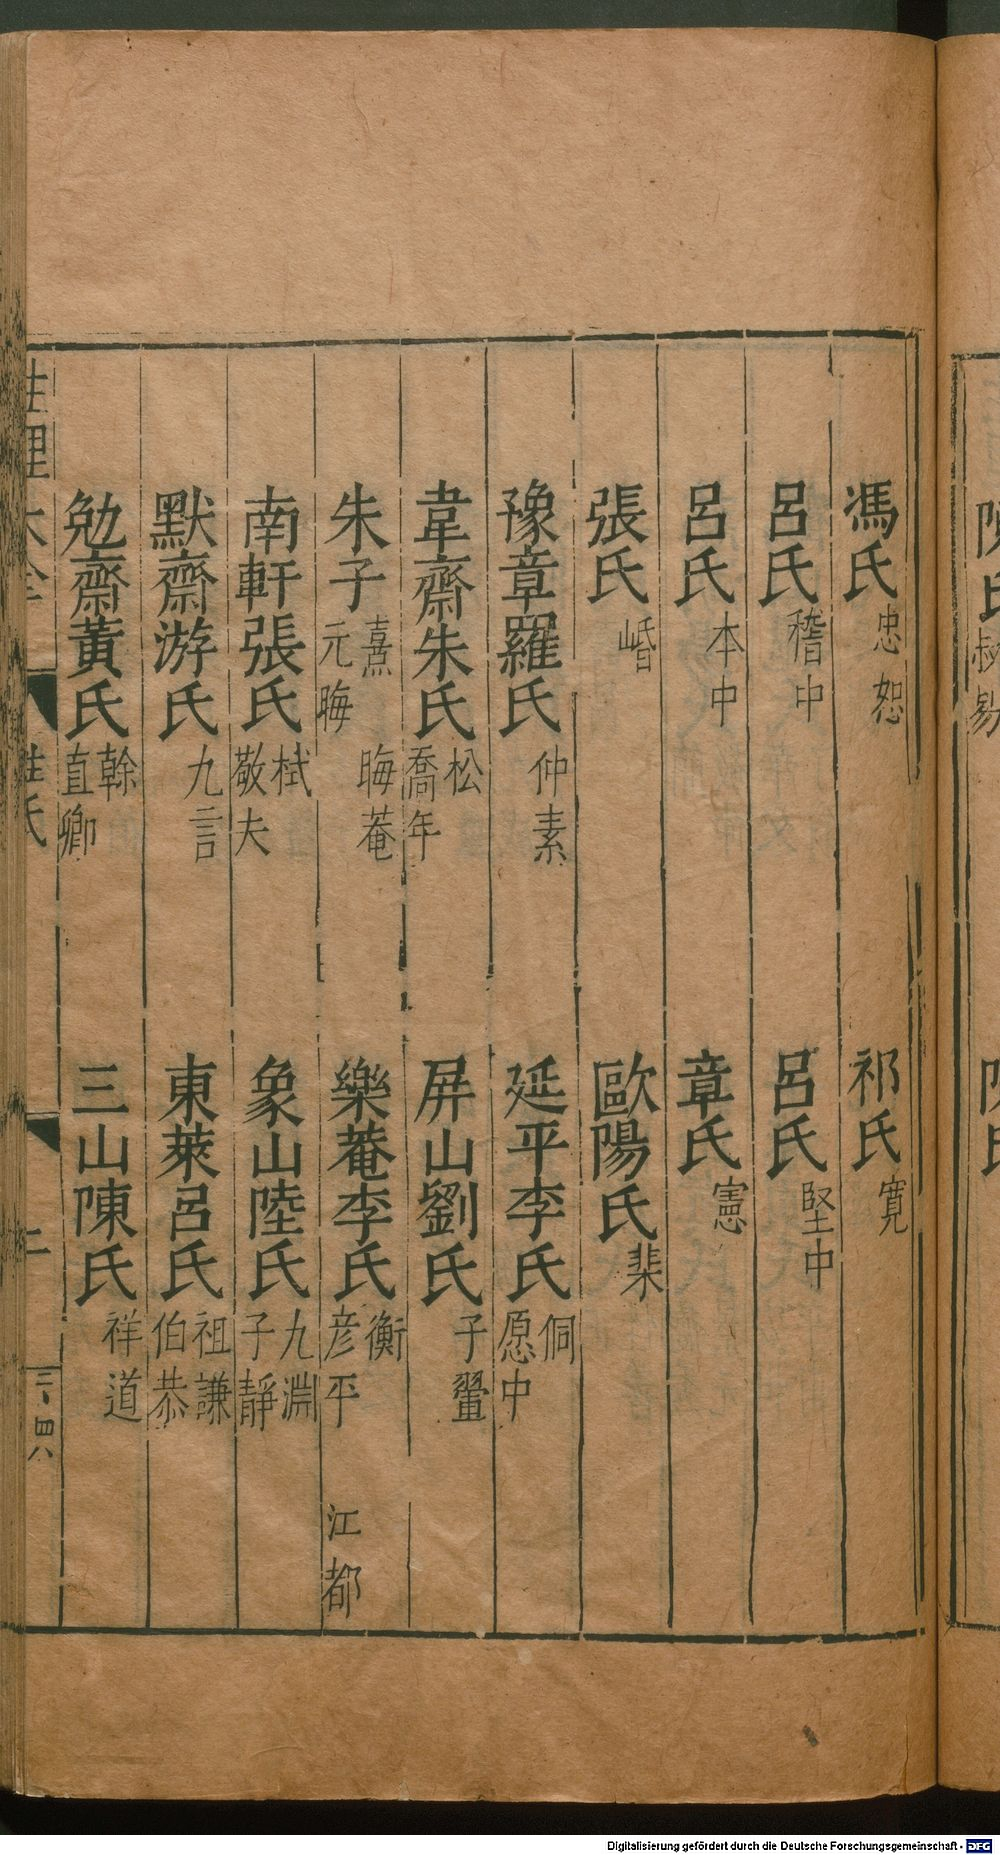 馮氏 忠恕 祁氏 寛
呂氏 稽中 呂氏 堅中
呂氏 本中 章氏 憲
張氏 㟭 歐陽氏 棐
豫章羅氏 仲素 延平李氏 侗 愿中
韋齋朱氏 松 喬年 屏山劉氏 子翬
朱子 熹 元晦 晦菴 樂菴李氏 衡 彦平 江都
南軒張氏 栻 敬夫 象山陸氏 九淵 子靜
默齋游氏 九言 東萊呂氏 祖謙 伯恭
勉齋黃氏 榦 直卿 三山陳氏 祥道
性理大全 姓氏 二 三、四八
Digitalisierung gefördert durch die Deutsche Forschungsgemeinschaft - DFG